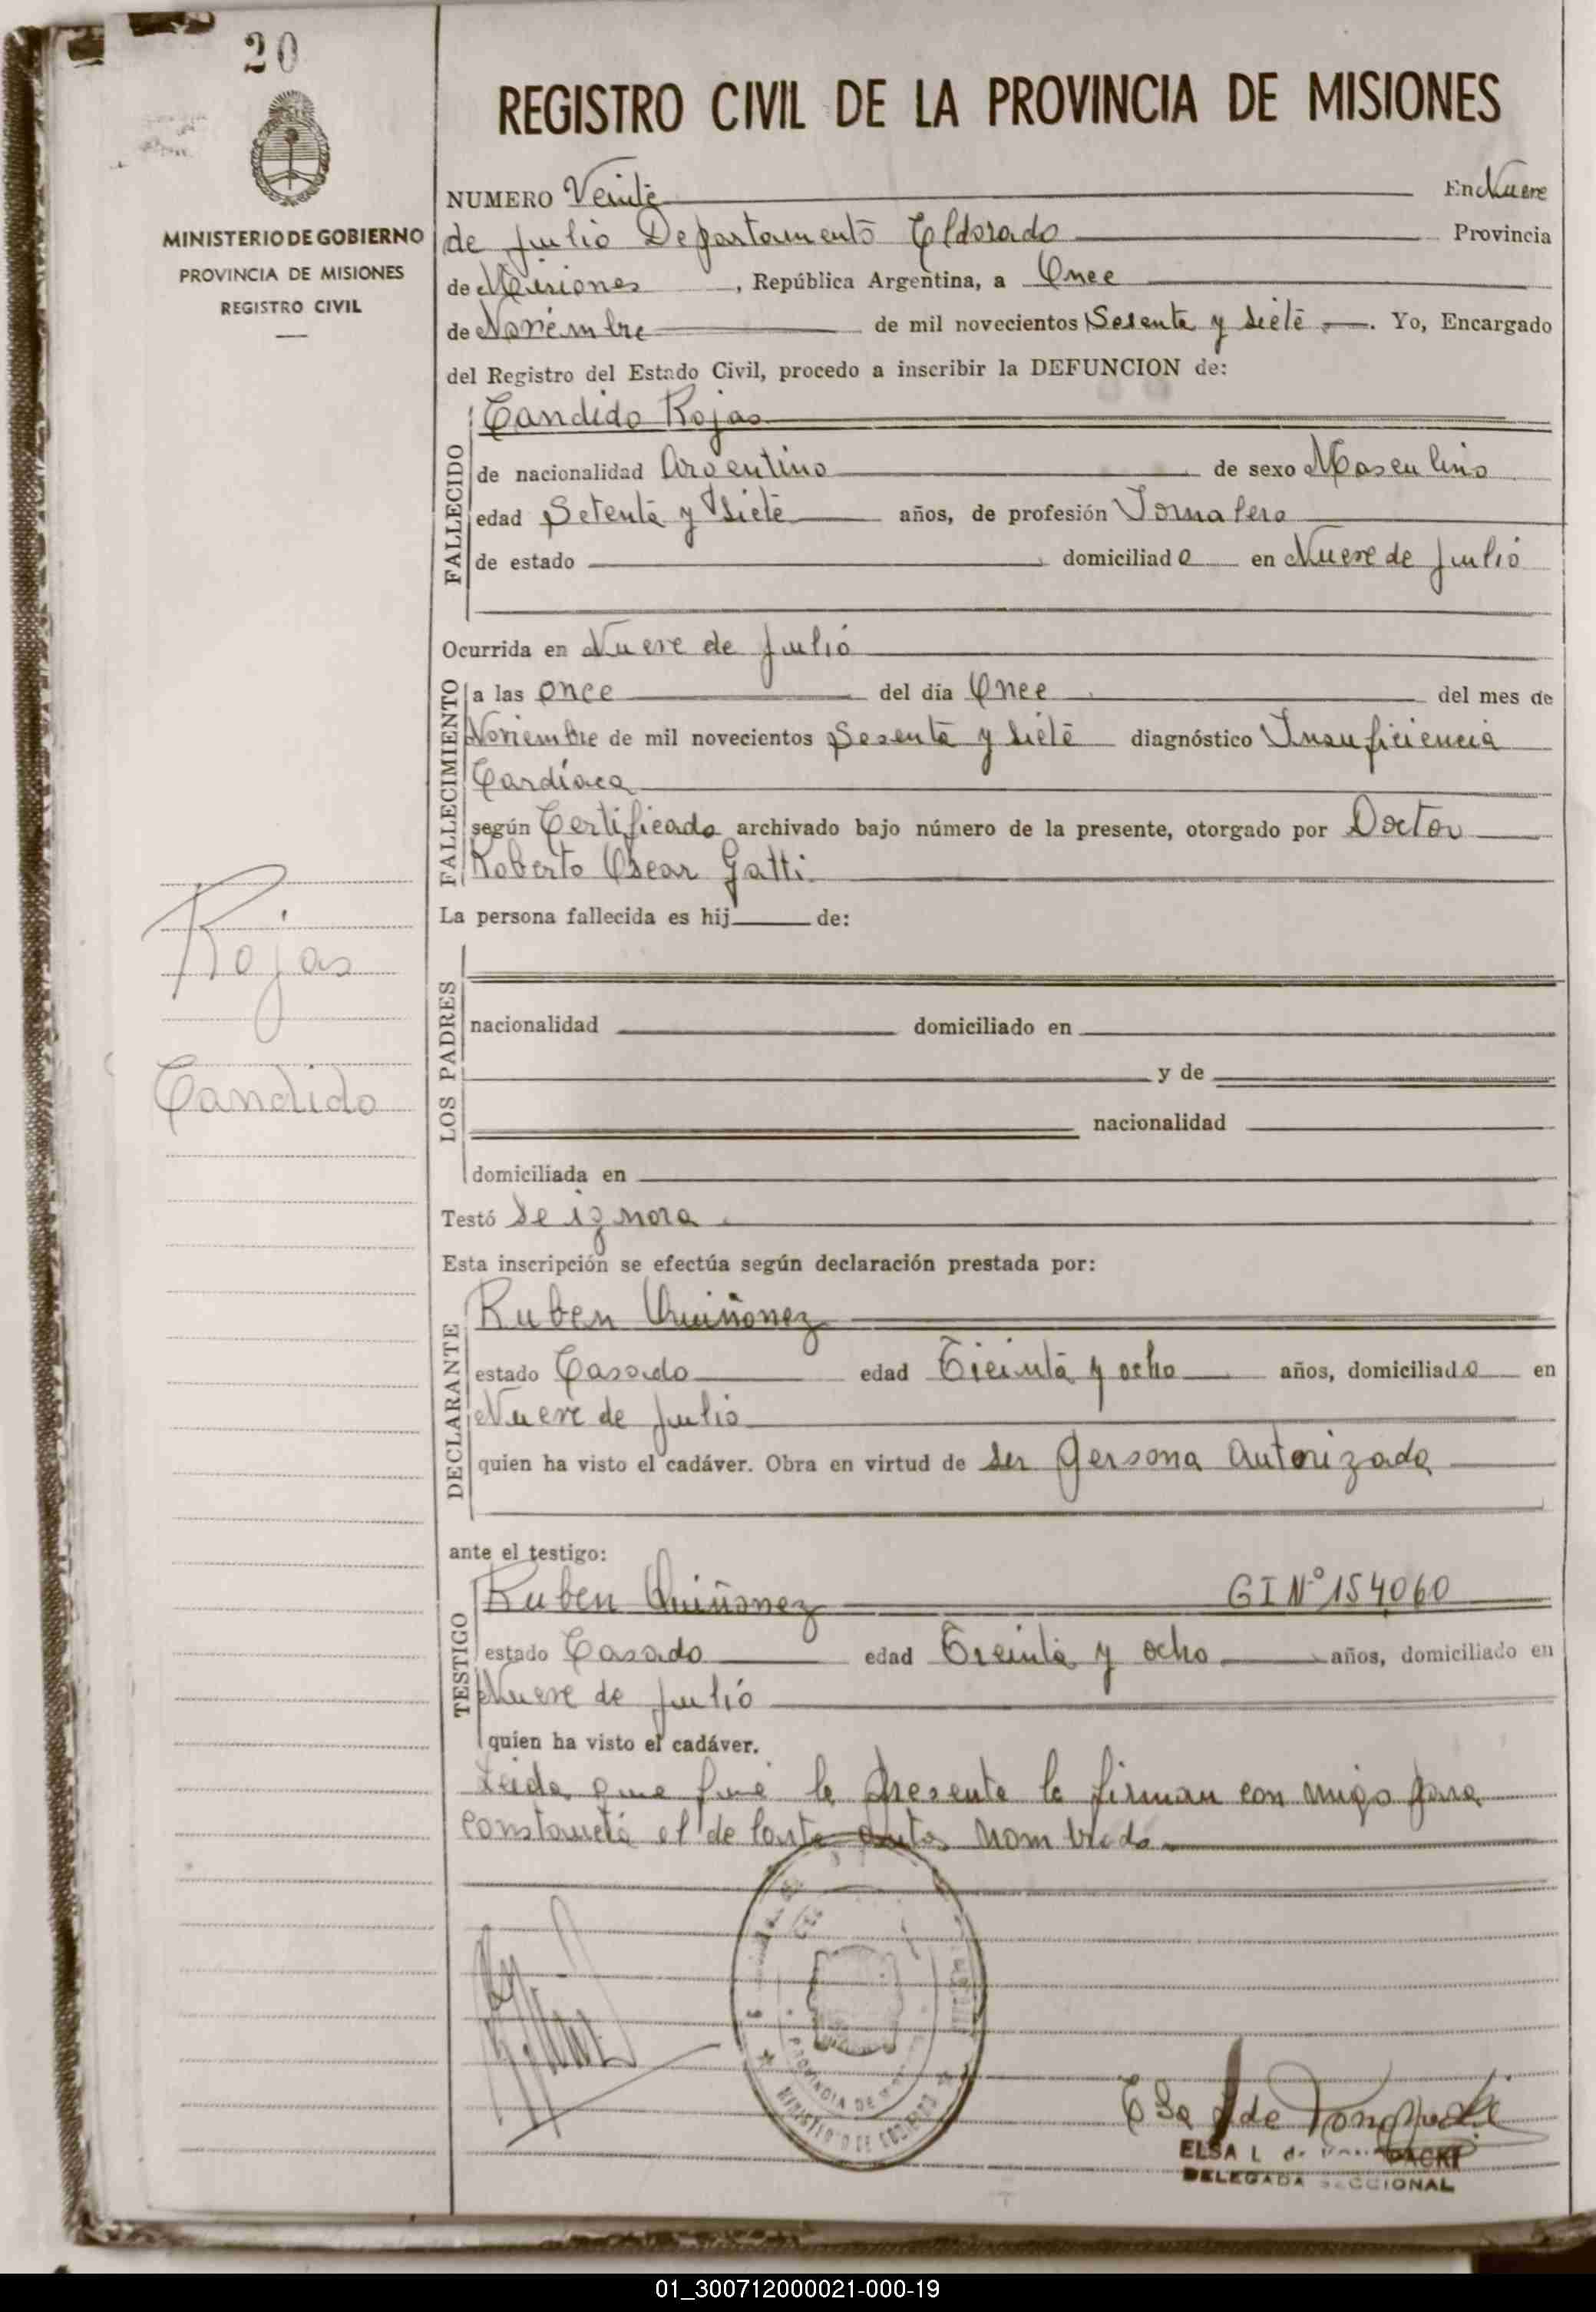 20
MINISTERIO DE GOBIERNO
PROVINCIA DE MISIONES
REGISTRO CIVIL
Rojas
Candido
REGISTRO CIVIL DE LA PROVINCIA DE MISIONES
NUMERO Veinte En Nueve
de Julio Departamento Eldorado Provincia
de Misiones, República Argentina, a Once
de Noviembre de mil novecientos Sesenta y siete. Yo, Encargado
del Registro del Estado Civil, procedo a inscribir la DEFUNCION de:
Candido Rojas
FALLECIDO
de nacionalidad Argentino de sexo Masculino
edad Setenta y Siete años, de profesión Jornalero
de estado domiciliado en Nueve de Julio
Ocurrida en Nueve de Julio
FALLECIMIENTO
a las once del día Once del mes de
Noviembre de mil novecientos Sesenta y siete diagnóstico Insuficiencia
Cardíaca
según Certificado archivado bajo número de la presente, otorgado por Doctor
Roberto Oscar Gatti
La persona fallecida es hij de:
LOS PADRES
nacionalidad domiciliado en
y de
nacionalidad
domiciliada en
Testó Se ignora
Esta inscripción se efectúa según declaración prestada por:
DECLARANTE
Ruben Quiñonez
estado Casado edad Treinta y ocho años, domiciliado en
Nueve de Julio
quien ha visto el cadáver. Obra en virtud de ser Persona Autorizada
ante el testigo:
TESTIGO
Ruben Quiñonez GI Nº 154060
estado Casado edad Treinta y ocho años, domiciliado en
Nueve de Julio
quien ha visto el cadáver.
Leida que fué la presente la firman con migo para
constancia el de
nombrado
PROVINCIA DE
MINISTERIO DE GOBIERNO
Elsa L de
ELSA L de
DELEGADA SECCIONAL
01_300712000021-000-19